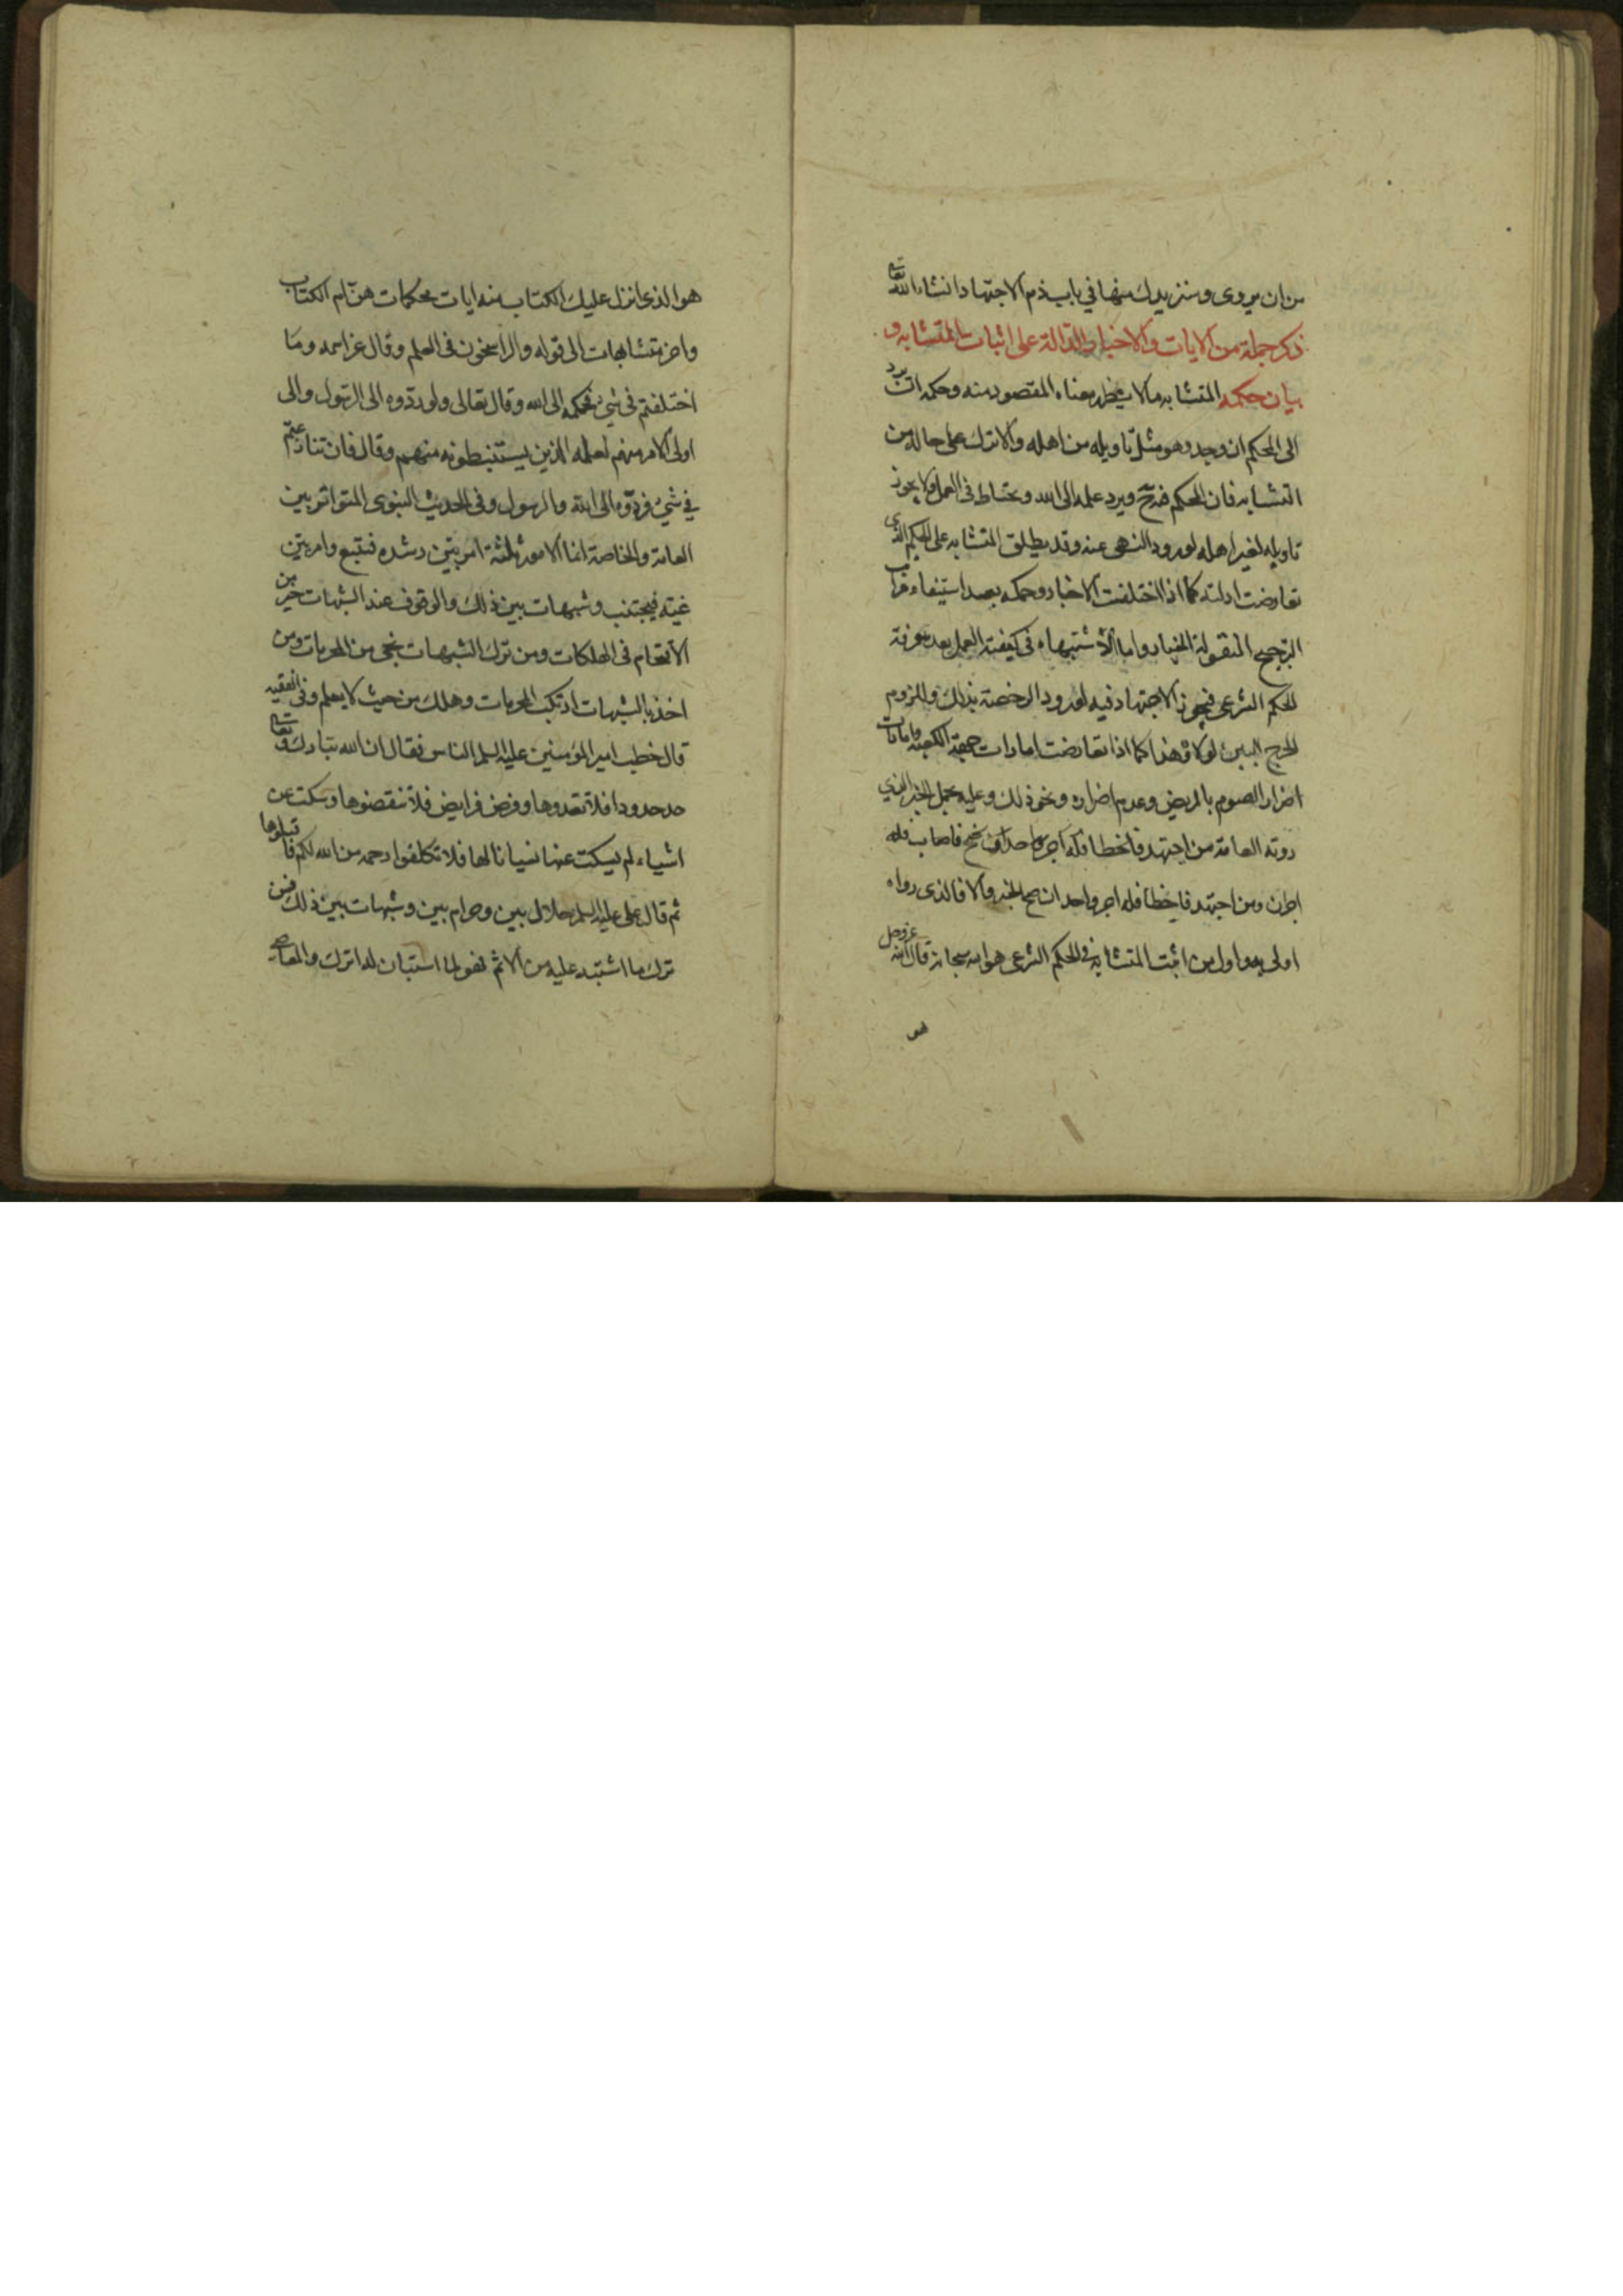 من ان يروى وسنزيدك منها في باب ذم الاجتهاد انشاء الله تعالى
ذكر جملة من الايات والاخبار الدالة على اثبات المتشابه و
بيان حكمه المتشابه ما لا يظهر معناه المقصود منه وحكمه ان يرد
الى المحكم ان وجد وهو مثل تاويله من اهله والا ترك على حاله من
التشابه فان الحكم فيه ويرد علمه الى الله ويحتاط في العمل ولا يجوز
تاويله لغير اهله لورود النهى عنه وقد يطلق المتشابه على الحكم الذى
تعارضت ادلته كما اذا اختلفت الاخبار وحكمه بعد استيفاء مراتب
الترجيح المنقولة التخيير واما الاشتباه في كيفية العمل بعد معرفة
الحكم الشرعى فيجوز الاجتهاد فيه لورود الرخصة بذلك وللزوم
الحرج البين لولاه وهذا كما اذا تعارضت امارات جهة الكعبة وامارات
اضرار الصوم بالمريض وعدم اضراره ونحو ذلك وعليه يحمل الخبر الذي
روته العامة من اجتهد فاصاب فله
اجران ومن اجتهد فاخطا فله اجر واحد ان صح الخبر والا فالذى رواه
اولى به واول من اثبت المتشابه في الحكم الشرعى هو الله سبحانه قال الله عزوجل
هو
هو الذى انزل عليك الكتاب منه ايات محكمات هن ام الكتاب
واخر متشابهات الى قوله والراسخون فى العلم وقال عز اسمه وما
اختلفتم فى شئ فحكمه الى الله وقال تعالى ولو ردوه الى الرسول والى
اولى الامر منهم لعلمه الذين يستنبطونه منهم وقال فان تنازعتم
في شئ فردوه الى الله والرسول وفى الحديث النبوى المتواتر بين
العامة والخاصة انما الامور ثلثة امر بين رشده فيتبع وامر بين
غيه فيجتنب وشبهات بين ذلك والوقوف عند الشبهات خير من
الاقتحام فى الهلكات ومن ترك الشبهات نجى من المحرمات ومن
اخذ بالشبهات ارتكب المحرمات وهلك من حيث لا يعلم وفى الفقيه
قال خطب امير المؤمنين عليه السلم الناس فقال ان الله تبارك وتعالى
حد حدودا فلا تعتدوها وفرض فرايض فلا تنقصوها وسكت عن
اشياء لم يسكت عنها نسيانا لها فلا تكلفوا رحمة من الله لكم فاقبلوها
ثم قال على عليه السلم حلال بين وحرام بين وشبهات بين ذلك فمن
ترك ما اشتبه عليه من الاثم فهو لما استبان له اترك والمعاصى